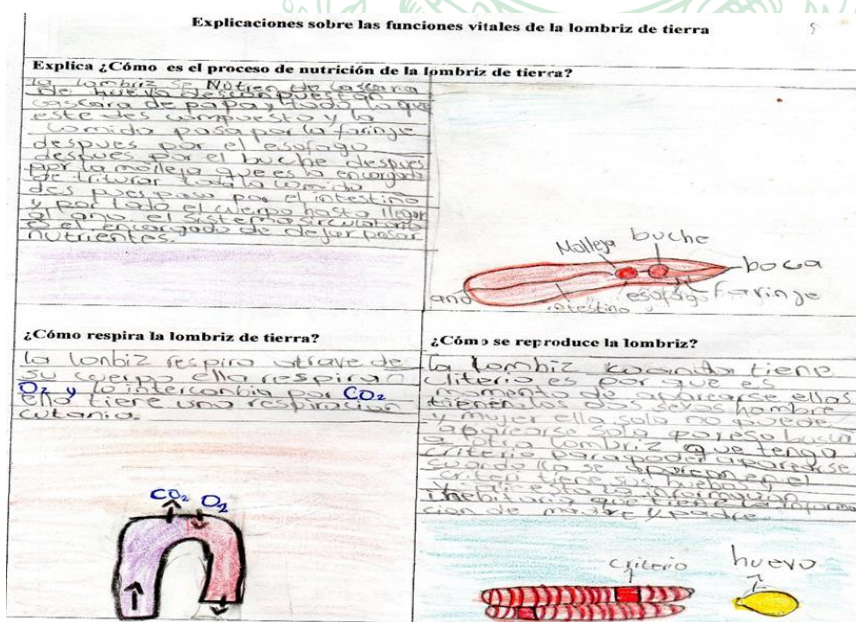 Explicaciones sobre las funciones vitales de la lombriz de tierra
5
Explica ¿Cómo es el proceso de nutrición de la lombriz de tierra?
La lombriz se Nutien de cascaria
de huevo descompuestan
cascara de papa y todo lo que
este des compuesto y la
comida pasa por la faringe
despues por el esofago
despues por el buche despues
por la molleja que es la encargada
de triturar toda la comida
des pues pasa por el intestino
y por todo el cuerpo hasta llegar
al ano el sistema sirculatorio
es el encargado de dejar pasar
nutrientes.
Molleja
buche
boca
faringe
esofago
intestino
ano
¿Cómo respira la lombriz de tierra?
la lonbiz respira atrave de
su cuerpo ella respiran
O₂ y lo intercanbia por CO₂
ella tiene una respiracion
cutania.
CO₂ O₂
¿Cómo se reproduce la lombriz?
la lombiz cuando tiene
cliterio es por que es
momento de aparearse ellas
tienen los dos sexos hombre
y mujer ella sola no puede
aparearse sola por eso busca
a otra lombriz que tenga
criterio para poder aparearse
cuando ya se aparean en el
criterio tiene sus huebos
y
informacion
que tiene la informa
cion de madre y padre
criterio
huevo